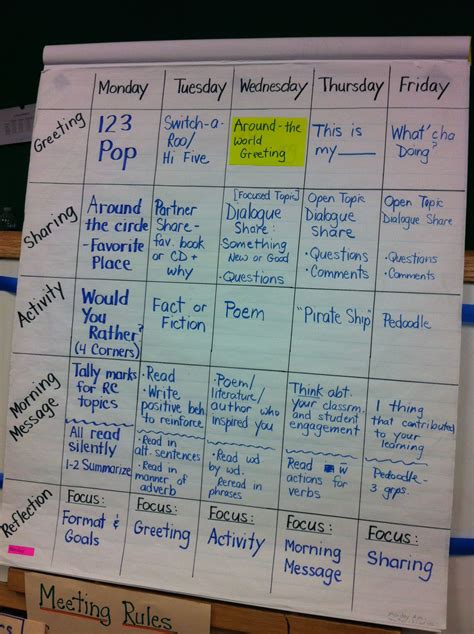 Monday
Tuesday
Wednesday
Thursday
Friday
Greeting
123
Pop
Switch-a-
Roo/
Hi Five
Around-the
world
Greeting
This is
my____
What'cha
Doing?
Sharing
Around
the circle
-Favorite
Place
Partner
Share-
fav. book
or CD +
why
[Focused Topic]
Dialogue
Share:
Something
New or Good
• Questions
Open Topic
Dialogue
Share
• Questions
• Comments
Open Topic
Dialogue Share
• Questions
• Comments
Activity
Would
You
Rather?
(4 Corners)
Fact or
Fiction
Poem
"Pirate Ship"
Pedoodle
Morning
Message
Tally marks
for RC
topics
All read
silently
1-2 Summarize
• Read
• Write
positive beh.
to reinforce
• Read in
alt. sentences
• Read in
manner of
adverb
• Poem/
literature/
author who
inspired you
Read wd
by wd.
reread in
phrases
Think abt.
your classrm.
and student
engagement
Read w
actions for
verbs
1 thing
that contributed
to your
learning
Pedoodle-
3 grps.
Reflection
Focus:
Format &
Goals
Focus:
Greeting
Focus:
Activity
Focus:
Morning
Message
Focus:
Sharing
Meeting Rules